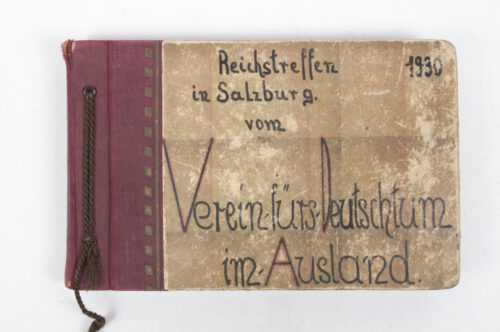 Reichstreffen 1930
in Salzburg.
vom
Verein-fürs-Deutschtum
im-Ausland.